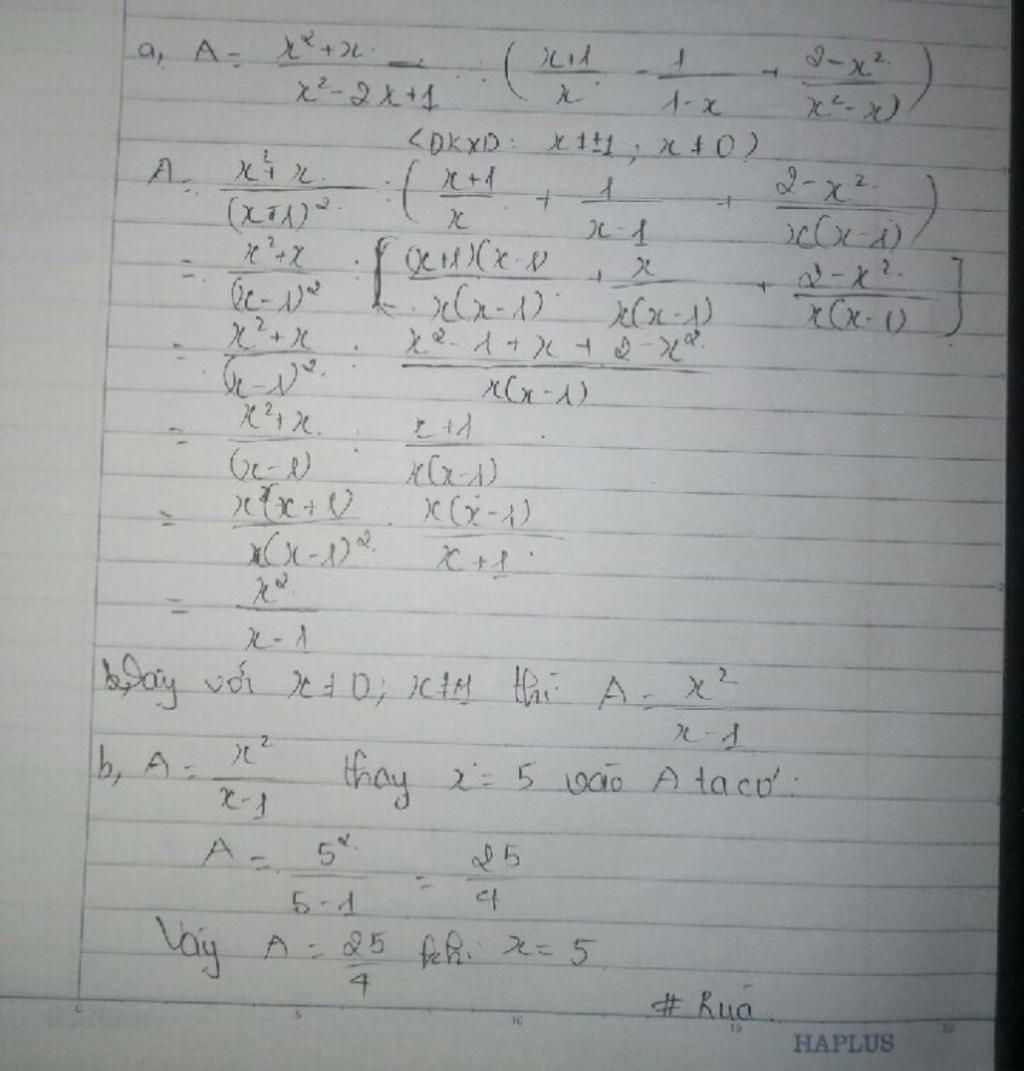 a, A = \frac{x^2+x}{x^2-2x+1} : ( \frac{x+1}{x} - \frac{1}{1-x} + \frac{2-x^2}{x^2-x} )
<ĐKXĐ: x ≠ ±1; x ≠ 0>
A = \frac{x^2+x}{(x-1)^2} : ( \frac{x+1}{x} + \frac{1}{x-1} + \frac{2-x^2}{x(x-1)} )
= \frac{x^2+x}{(x-1)^2} : [ \frac{(x+1)(x-1)}{x(x-1)} + \frac{x}{x(x-1)} + \frac{2-x^2}{x(x-1)} ]
= \frac{x^2+x}{(x-1)^2} : \frac{x^2-1+x+2-x^2}{x(x-1)}
= \frac{x^2+x}{(x-1)} : \frac{x+1}{x(x-1)}
= \frac{x(x+1)}{(x-1)^2} . \frac{x(x-1)}{x+1}
= \frac{x^2}{x-1}
Vậy với x ≠ 0; x ≠ ±1 thì A = \frac{x^2}{x-1}
b, A = \frac{x^2}{x-1} thay x = 5 vào A ta có:
A = \frac{5^2}{5-1} = \frac{25}{4}
Vậy A = \frac{25}{4} khi x = 5
# Rùa
5 10 15 20
HAPLUS